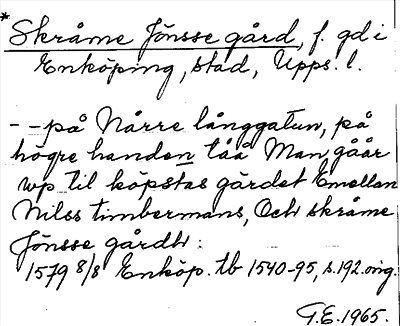 *Skråme Jönsse gård, f. gd i
Enköping, stad, Upps. l.
- - på Nårre långgatun, på
högre handen tåå Man gåår
wp til köpstas gärdet Emellan
Nilss timbermans, Och skråme
Jönsse gårdh :
1579 8/8 Enköp. tb 1540-95, s. 192 orig.
G.E. 1965.